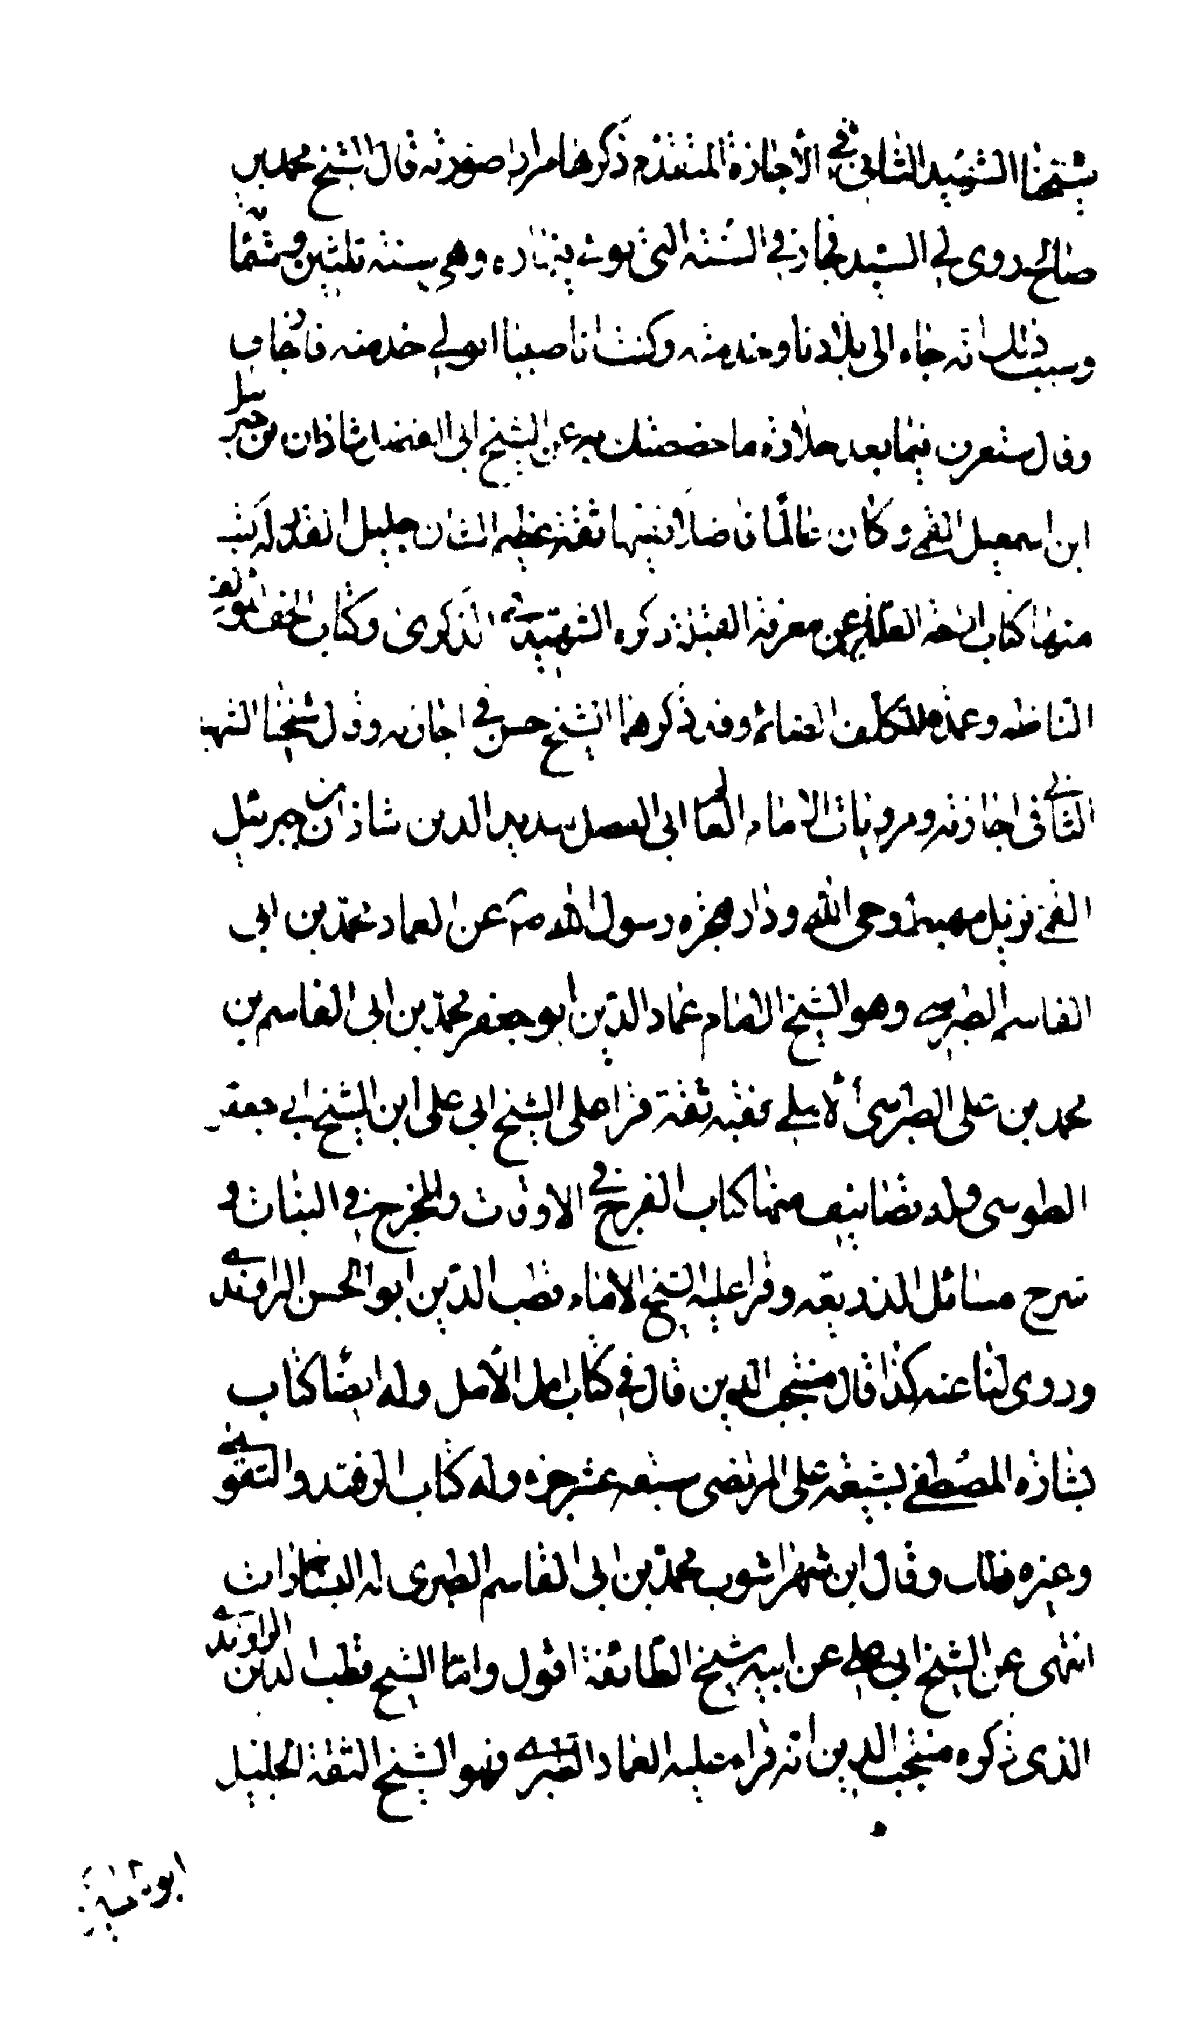 شيخنا الشهيد الثاني في الأجازة المتقدم ذكرها مرارا صورته قال الشيخ محمد بن
صالح روى لي السيد فخار في السنة التي توفي وهي سنة ثلثين وستمأ
وسبب ذلك انه جاء الى بلادنا وخدمته وكنت انا صبيا اتولى خدمته فاجازني
وقال ستعرف فيما بعد حلاوة ما خصصتك به عن الشيخ ابى الفضل شاذان بن جبرئيل
ابن اسمعيل القمي وكان عالما فاضلا فقيها ثقة عظيم الشان جليل القدر له كتب
منها كتاب ازاحة العلة عن معرفة القبلة ذكره الشهيد في الذكرى وكتاب تحفة المؤلف
الناظم وعمدة المكلف الصائم وقد ذكرهما الشيخ حسن في اجازته وقال شيخنا الشهيد
الثاني في اجازته ومرويات الامام العالم ابى الفضل سديد الدين شاذان بن جبرئيل
القمي نزيل مهبط وحى الله ودار هجرة رسول الله ص عن العماد محمد بن ابى
القاسم الطبرسي وهو الشيخ الامام عماد الدين ابو جعفر محمد بن ابى القاسم بن
محمد بن على الطبرسى الآملي فقيه ثقة قرا على الشيخ ابى على ابن الشيخ ابي جعفر
الطوسى وله تصانيف منها كتاب الفرج في الاوقات والمخرج في البينات و
شرح مسائل الذريعة وقرا عليه الشيخ الامام قطب الدين ابو الحسن الراوندي
وروى لنا عنه كذا قال منتجب الدين قال في كتاب امل الآمل وله ايضا كتاب
بشارة المصطفى لشيعة على المرتضى سبعة عشر جزء وله كتاب الزهد والتقوى
وغيره وقال ابن شهراشوب محمد بن ابى القاسم الطبرى له البشارات
انتهى عن الشيخ ابى على عن ابيه شيخ الطائفة اقول واما الشيخ قطب الدين الراوندي
الذى ذكره منتجب الدين انه قرا عليه العماد الطبرسي فهو الشيخ الثقة الجليل